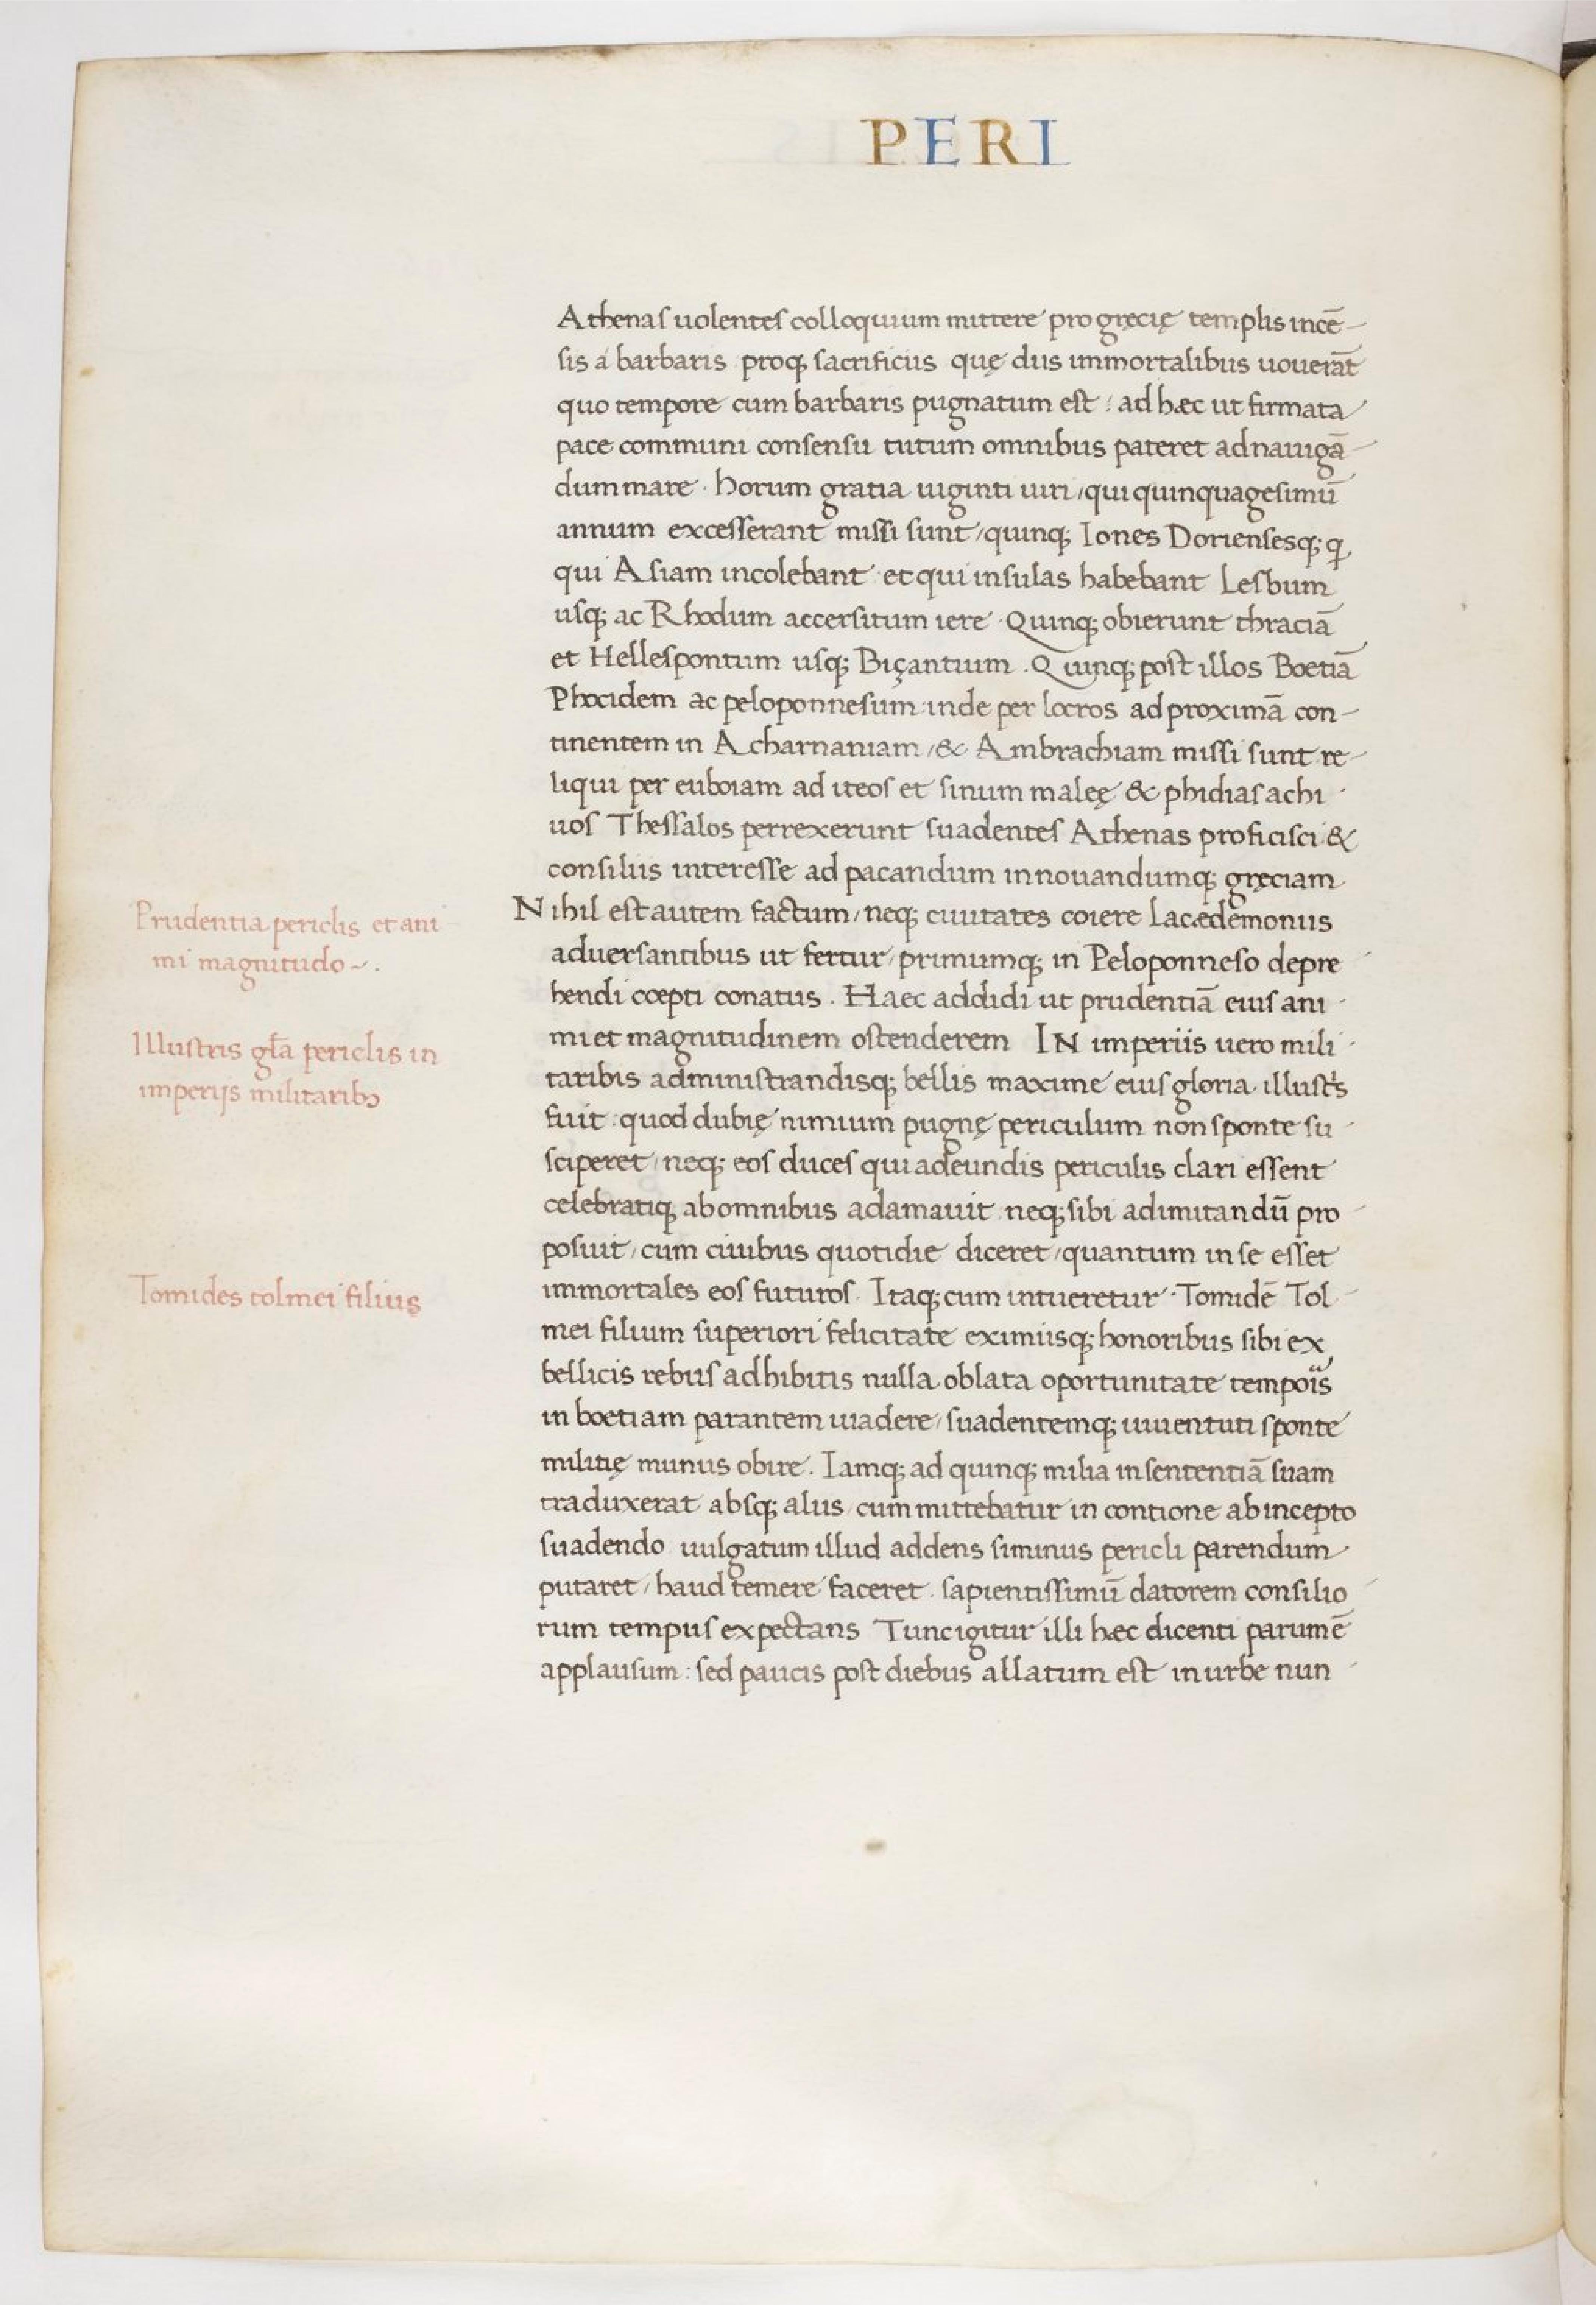 PERI
Athenas uolentes colloquium mittere pro gręcię templis incē-
sis á barbaris proq; sacrificiis quę diis immortalibus uouerāt
quo tempore cum barbaris pugnatum est: ad hæc ut firmata
pace communi consensu tutum omnibus pateret ad nauigā-
dum mare. horum gratia uiginti uiri, qui quinquagesimū
annum excesserant missi sunt, quinq; Iones Doriensesq;
qui Asiam incolebant et qui insulas habebant Lesbum
usq; ac Rhodum accersitum iere. Quinq; obierunt thraciā
et Hellespontum usq; Biçantium. Quinq; post illos Boetiā
Phocidem ac peloponnesum: inde per locros ad proximā con-
tinentem in Acharnaniam, & Ambrachiam missi sunt. re-
liqui per euboiam ad iteos et sinum maleę & phidias achi-
uos Thessalos perrexerunt suadentes Athenas proficisci &
consiliis interesse ad pacandum innouandumq; gręciam
Nihil est autem factum, neq; ciuitates coiere Lacædemoniis
aduersantibus ut fertur, primumq; in Peloponneso depre-
hendi cœpti conatus. Haec addidi ut prudentiā eius ani-
mi et magnitudinem ostenderem IN imperiis uero mili-
taribis administrandisq; bellis maxime eius gloria illust̍s
fuit: quod dubię nimium pugnę periculum non sponte su-
sciperet, neq; eos duces qui adeundis periculis clari essent
celebratiq; ab omnibus adamauit neq; sibi adimitandū pro-
posuit, cum ciuibus quotidie diceret, quantum in se esset
immortales eos futuros. Itaq; cum intueretur Tomidē Tol-
mei filium superiori felicitate eximiisq; honoribus sibi ex
bellicis rebus adhibitis nulla oblata oportunitate tempois
in boetiam parantem uiadere, suadentemq; iuuentuti sponte
militię munus obire. Iamq; ad quinq; milia in sententiā suam
traduxerat absq; aliis, cum mittebatur in contione ab incepto
suadendo uulgatum illud addens si minus pericli parendum
putaret, haud temere faceret. sapientissimū datorem consilio-
rum tempus expectans Tunc igitur illi hæc dicenti parum ē
applausum: sed paucis post diebus allatum est in urbe nun-
Prudentia periclis et ani-
mi magnitudo~.
Illustris gl̄a periclis in
imperijs militaribꝰ
Tomides tolmei filius